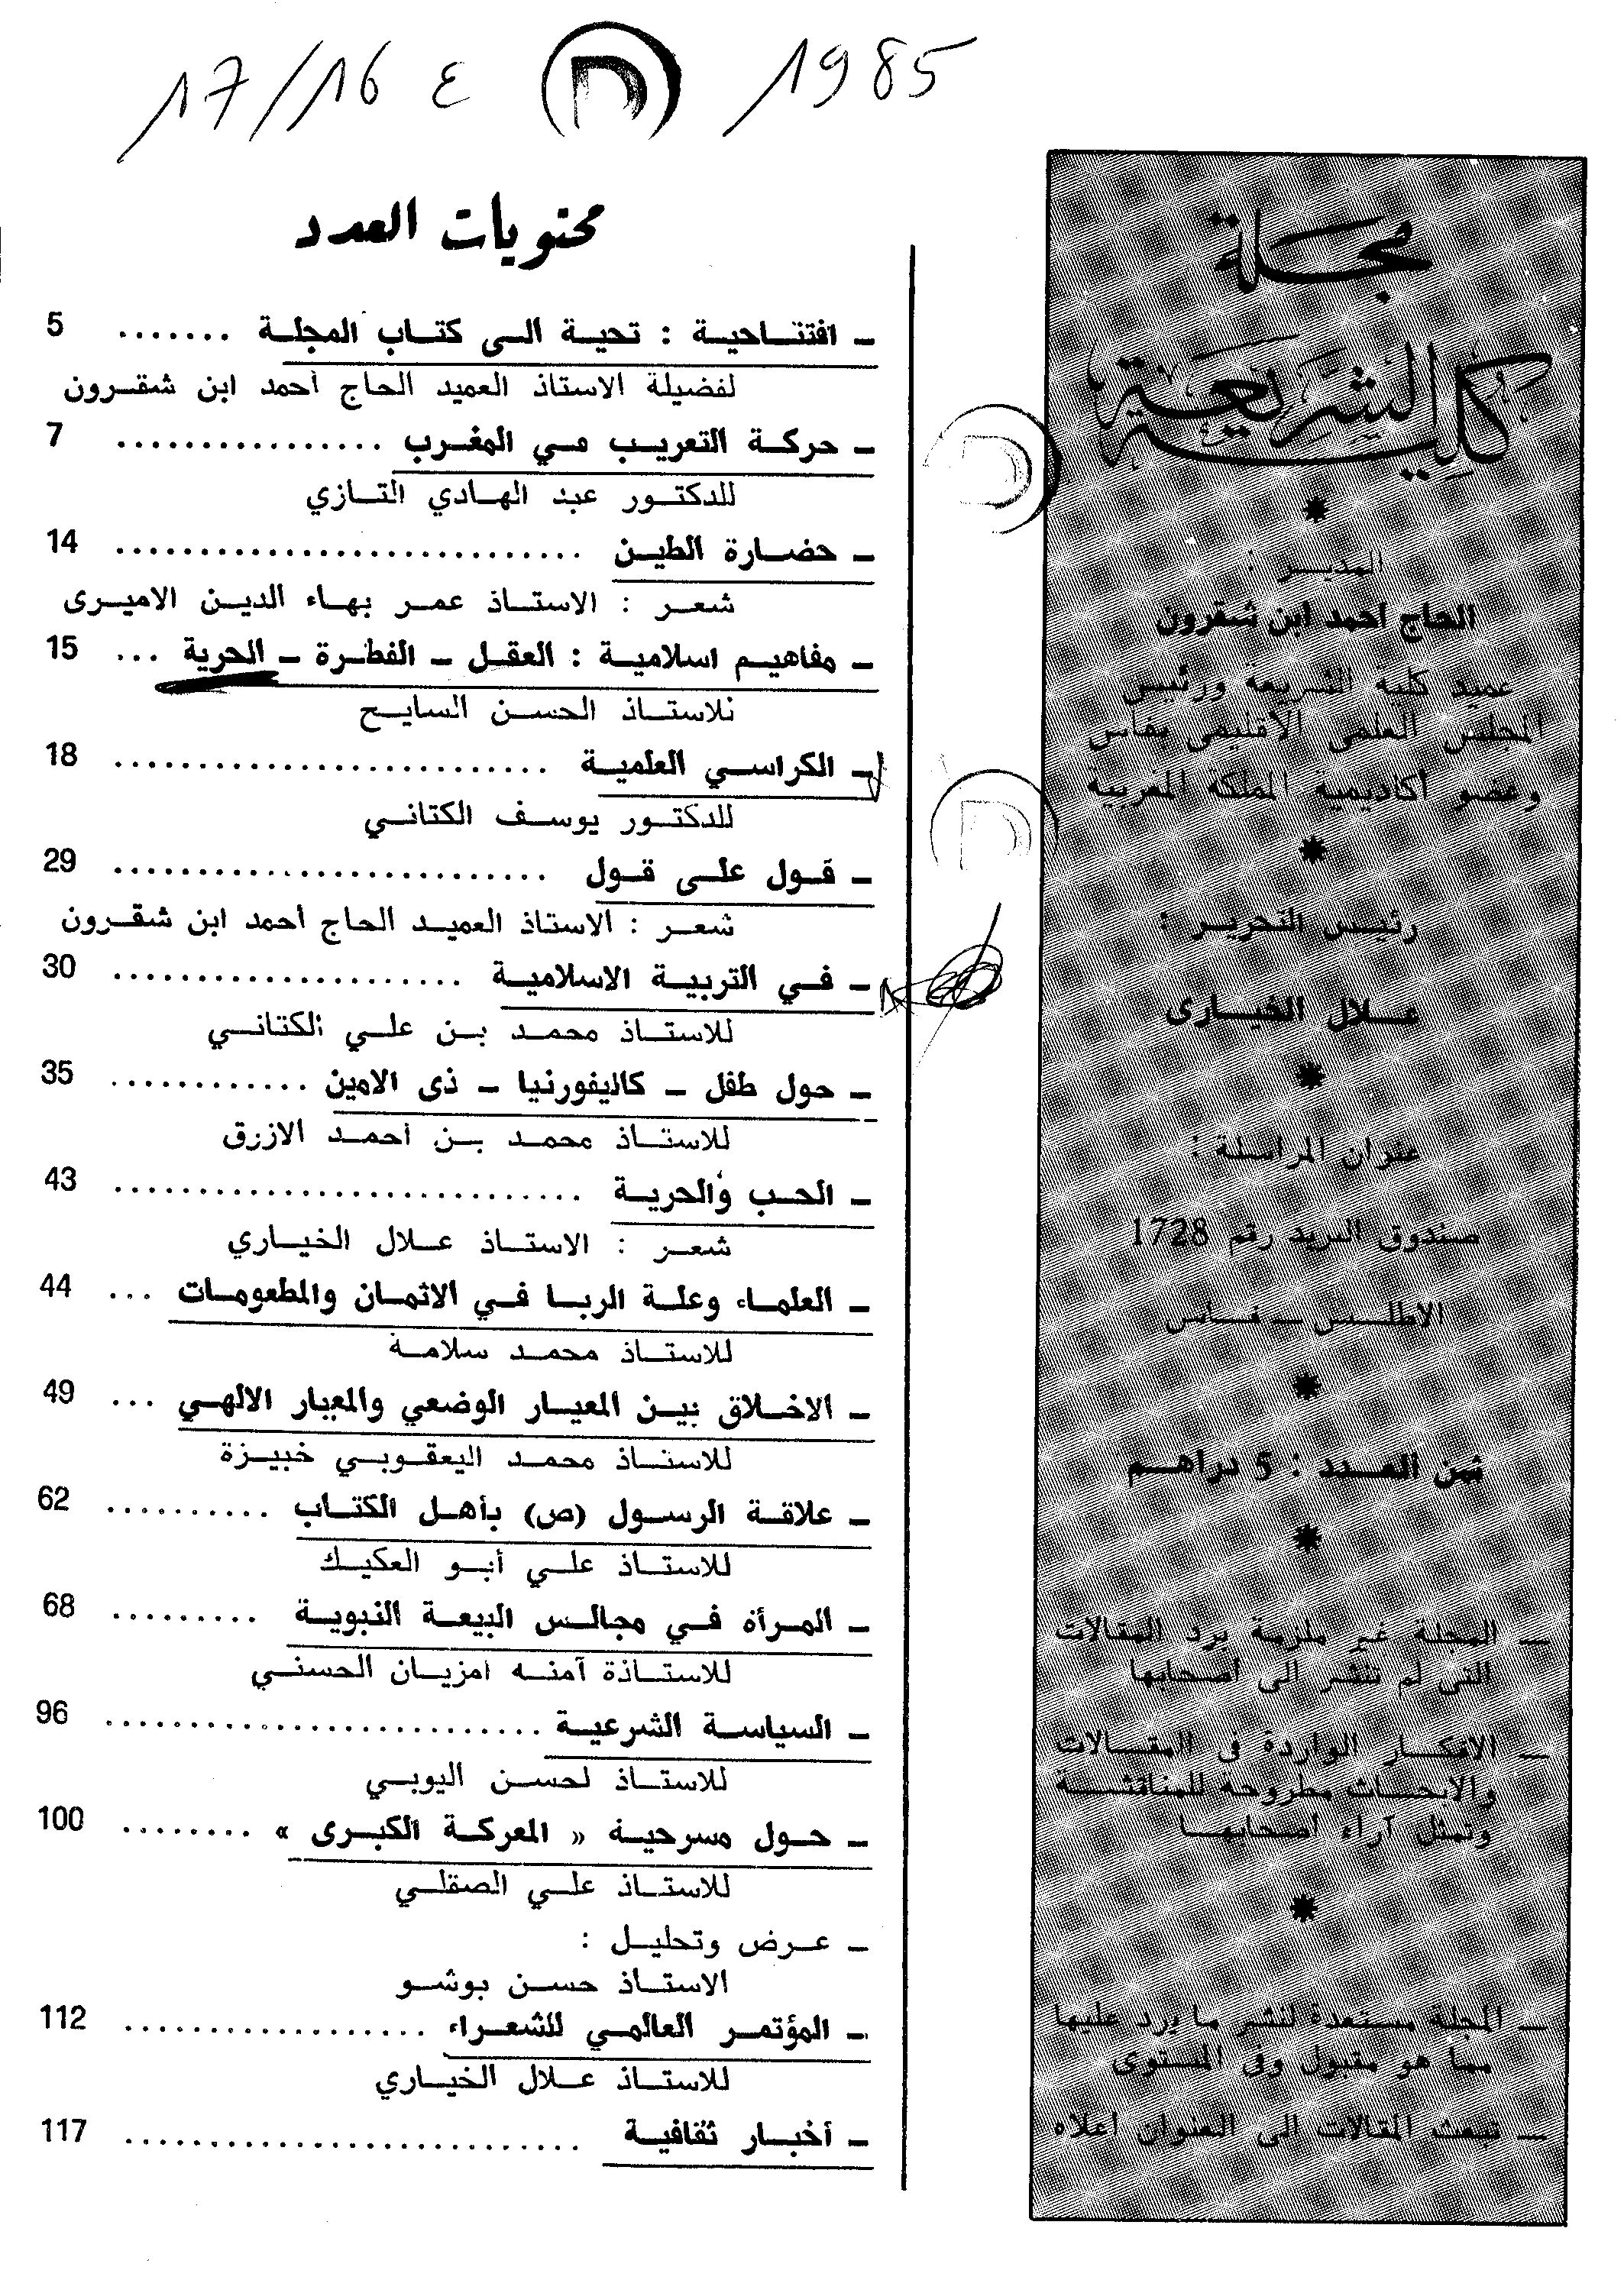 1985 ع 17/16
مجلة
كلية الشريعة
المديـر :
الحاج احمد ابن شقرون
عميد كلية الشريعة ورئيس
المجلس العلمي الاقليمي بفاس
وعضو أكاديمية المملكة المغربية
رئيس التحرير :
علال الخيارى
عنوان المراسلة :
صندوق البريد رقم 1728
الاطلس ـ فاس
ثمن العدد : 5 دراهم
ـ المجلة غير ملزمة برد المقالات
التي لم تنشر الى أصحابها
ـ الافكار الواردة في المقالات
والابحاث مطروحة للمناقشة
وتمثل آراء أصحابها
ـ المجلة مستعدة لنشر ما يرد عليها
مما هو مقبول وفي المستوى
ـ تبعث المقالات الى العنوان اعلاه
محتويات العدد
ـ افتتاحية : تحية الى كتاب المجلة ....... 5
لفضيلة الاستاذ العميد الحاج أحمد ابن شقرون
ـ حركة التعريب مي المغرب ................ 7
للدكتور عبد الهادي التازي
ـ حضارة الطين ............................ 14
شعر : الاستاذ عمر بهاء الدين الاميرى
ـ مفاهيم اسلامية : العقل ـ الفطرة ـ الحرية ... 15
نلاستاذ الحسن السايح
ـ الكراسي العلمية ........................... 18
للدكتور يوسف الكتاني
ـ قول على قول ........................... 29
شعر : الاستاذ العميد الحاج أحمد ابن شقرون
ـ في التربية الاسلامية ...................... 30
للاستاذ محمد بن علي الكتاني
ـ حول طفل ـ كاليفورنيا ـ ذى الامين ............ 35
للاستاذ محمد بن أحمد الازرق
ـ الحب والحرية ............................. 43
شعر : الاستاذ علال الخياري
ـ العلماء وعلة الربا في الاثمان والمطعومات ... 44
للاستاذ محمد سلامة
ـ الاخلاق بين المعيار الوضعي والمعيار الالهي ... 49
للاستاذ محمد اليعقوبي خبيزة
ـ علاقة الرسول (ص) بأهل الكتاب .......... 62
للاستاذ علي أبو العكيك
ـ المرأة في مجالس البيعة النبوية ......... 68
للاستاذة آمنه امزيان الحسني
ـ السياسة الشرعية .......................... 96
للاستاذ لحسن اليوبي
ـ حول مسرحية « المعركة الكبرى » ........ 100
للاستاذ علي الصقلي
ـ عرض وتحليل :
الاستاذ حسن بوشو
ـ المؤتمر العالمي للشعراء .................. 112
للاستاذ علال الخياري
ـ أخبار ثقافية ............................ 117